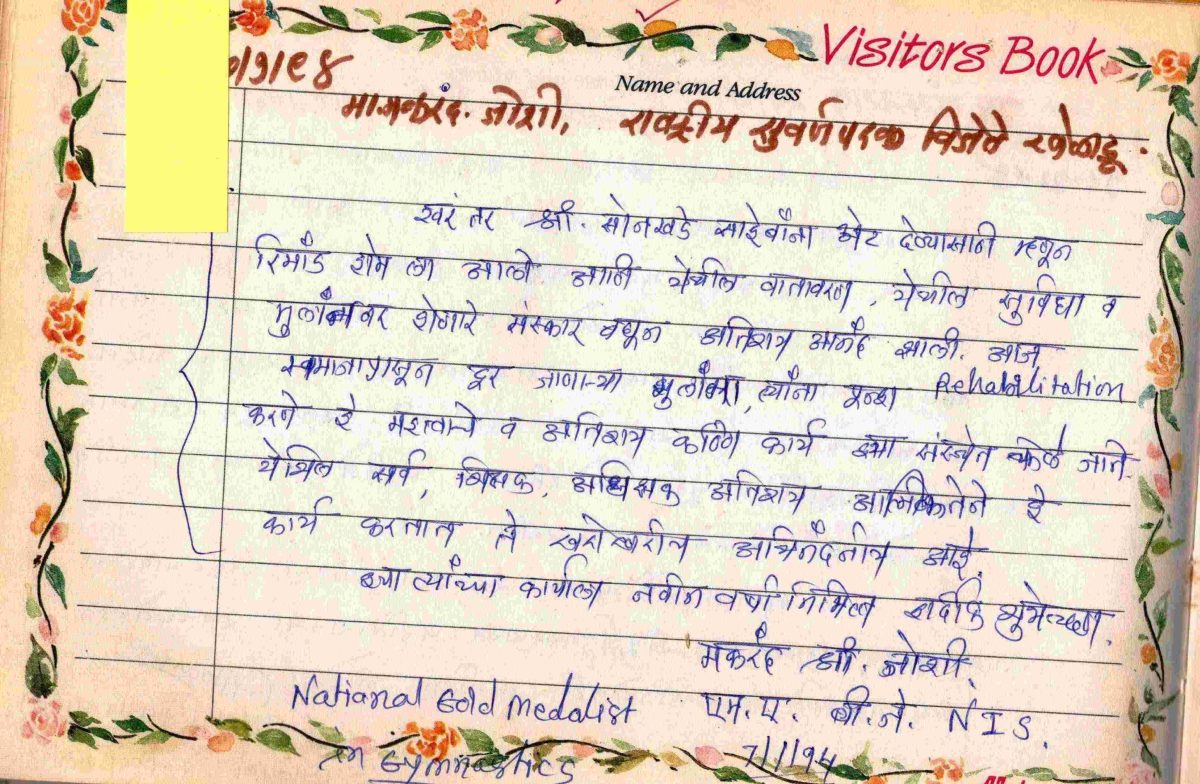 Visitors Book
७/१/९४
Name and Address
माकरंद. जोशी, राष्ट्रीय सुवर्णपदक विजेते खेळाडू.
खरं तर श्री. सोनखडे साहेबांना भेट देण्यासाठी म्हणून
रिमांड होम ला आलो आणि येथील वातावरण, येथील सुविधा व
मुलांवर होणारे संस्कार बघून अतिशय आनंद झाला. आज
समाजापासून दूर जाणाऱ्या मुलांना, त्यांना पुन्हा Rehabilitation
करणे हे महत्वाचे व अतिशय कठिण कार्य ह्या संस्थेत केले जाते
येथिल सर्व, शिक्षक, अधिक्षक अतिशय आत्मियतेने हे
कार्य करतात ते खरोखरीच अभिनंदनीय आहे.
ह्या त्यांच्या कार्याला नवीन वर्षा निमित्त हार्दिक शुभेच्छा.
मकरंद श्री. जोशी.
National Gold Medalist एम. ए. बी. जे. NIS.
In Gymnastics 7/1/94